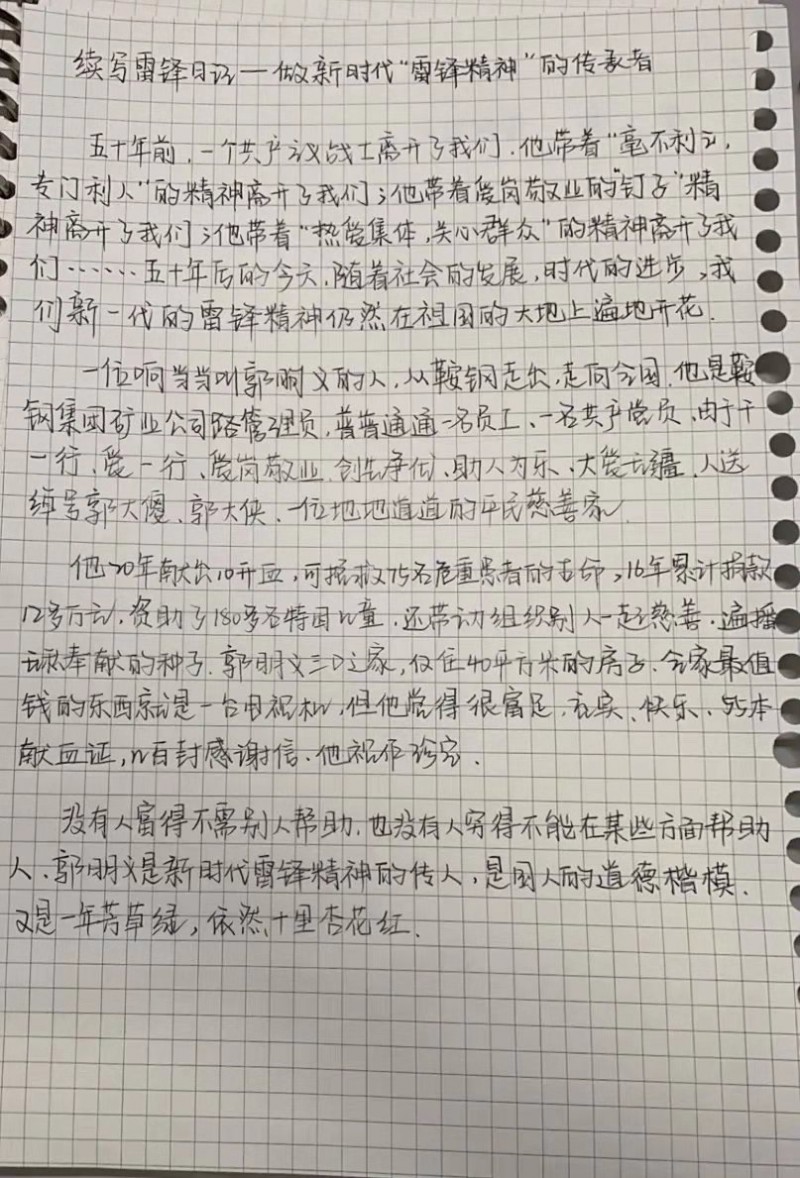 续写雷锋日记—做新时代“雷锋精神”的传承者
五十年前，一个共产主义战士离开了我们，他带着“毫不利己，
专门利人”的精神离开了我们；他带着爱岗敬业的“钉子”精
神离开了我们；他带着“热爱集体，关心群众”的精神离开了我
们……五十年后的今天，随着社会的发展，时代的进步，我
们新一代的雷锋精神仍然在祖国的大地上遍地开花.
一位响当当叫郭明义的人，从鞍钢走出，走向全国，他是鞍
钢集团矿业公司路管理员，普普通通一名员工、一名共产党员，由于干
一行、爱一行、爱岗敬业、创先争优、助人为乐、大爱无疆、人送
绰号郭大傻、郭大侠、一位地地道道的平民慈善家
他20年献出10升血，可拯救75名危重患者的生命，16年累计捐款
12多万元，资助了180多名特困儿童，还带动组织别人一起慈善.遍播
无私奉献的种子.郭明义三口之家，仅住40平方米的房子、全家最值
钱的东西就是一台电视机，但他觉得很富足，充实、快乐、55本
献血证，几百封感谢信、他视作珍宝.
没有人富得不需别人帮助，也没有人穷得不能在某些方面帮助
人、郭明义是新时代雷锋精神的传人，是国人的道德楷模.
又是一年芳草绿，依然十里杏花红.